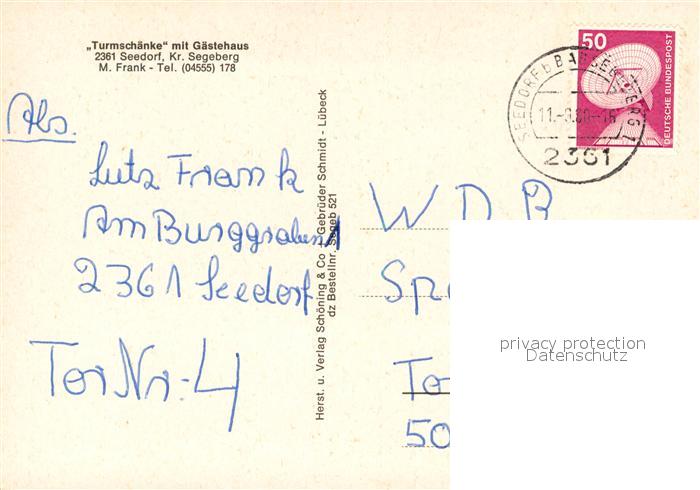 „Turmschänke" mit Gästehaus
2361 Seedorf, Kr. Segeberg
M. Frank - Tel. (04555) 178
Abs.
Lutz Frank
Am Burggraben 1
2361 Seedorf
Tor Nr. 4
Herst. u. Verlag Schöning & Co + Gebrüder Schmidt - Lübeck
dz Bestellnr. Segeb 521
50
DEUTSCHE BUNDESPOST
SEEDORF b BAD SEGEBERG 1
2361
WDR
Spo
To
50
privacy protection
Datenschutz